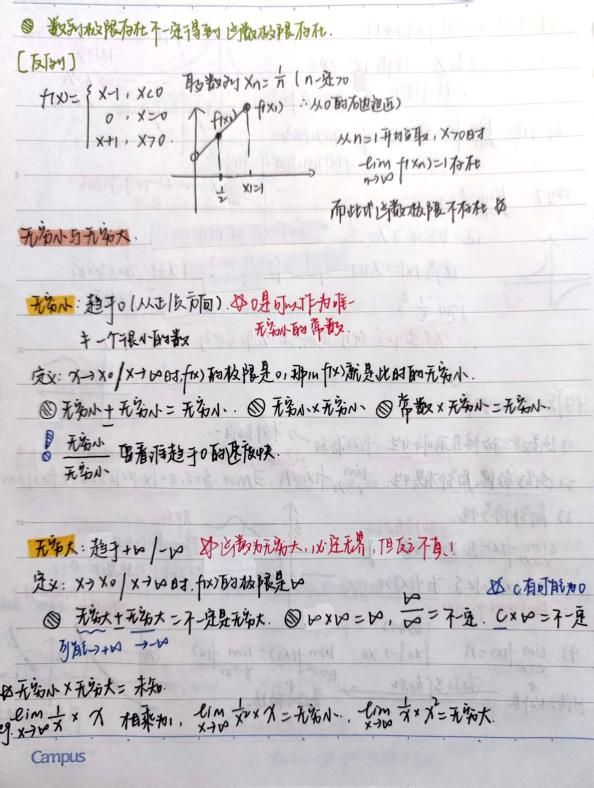 数列极限存在不一定得到函数极限存在.
[反例]
f(x)= { x-1, x<0
0, x=0
x+1, x>0.
取数列 Xn=1/n (n一定>0
∴从0的右边逼近)
f(x₂) f(x₁)
1/2 x₁=1
从n=1开始取, x>0时
lim n→∞ f(xn)=1存在
而此时函数极限不存在
无穷小与无穷大.
无穷小: 趋于0(从正/负方向). 0是可以作为唯一
≠一个很小的数 无穷小的常数
定义: x→x₀/x→∞时, f(x)的极限是0, 那么f(x)就是此时的无穷小.
无穷小±无穷小=无穷小. 无穷小×无穷小 常数×无穷小=无穷小.
无穷小/无穷小 要看谁趋于0的速度快.
无穷大: 趋于+∞/-∞ 函数为无穷大, 必定无界, 但反之不真!
定义: x→x₀/x→∞时, f(x)的极限是∞ c有可能为0
无穷大±无穷大=不一定是无穷大. ∞×∞=∞, ∞/∞=不一定. C×∞=不一定
可能→+∞ →-∞
无穷小×无穷大=未知.
eg. lim x→∞ 1/x × x 相乘为1, lim x→∞ 1/x² × x=无穷小, lim x→∞ 1/x × x²=无穷大.
Campus